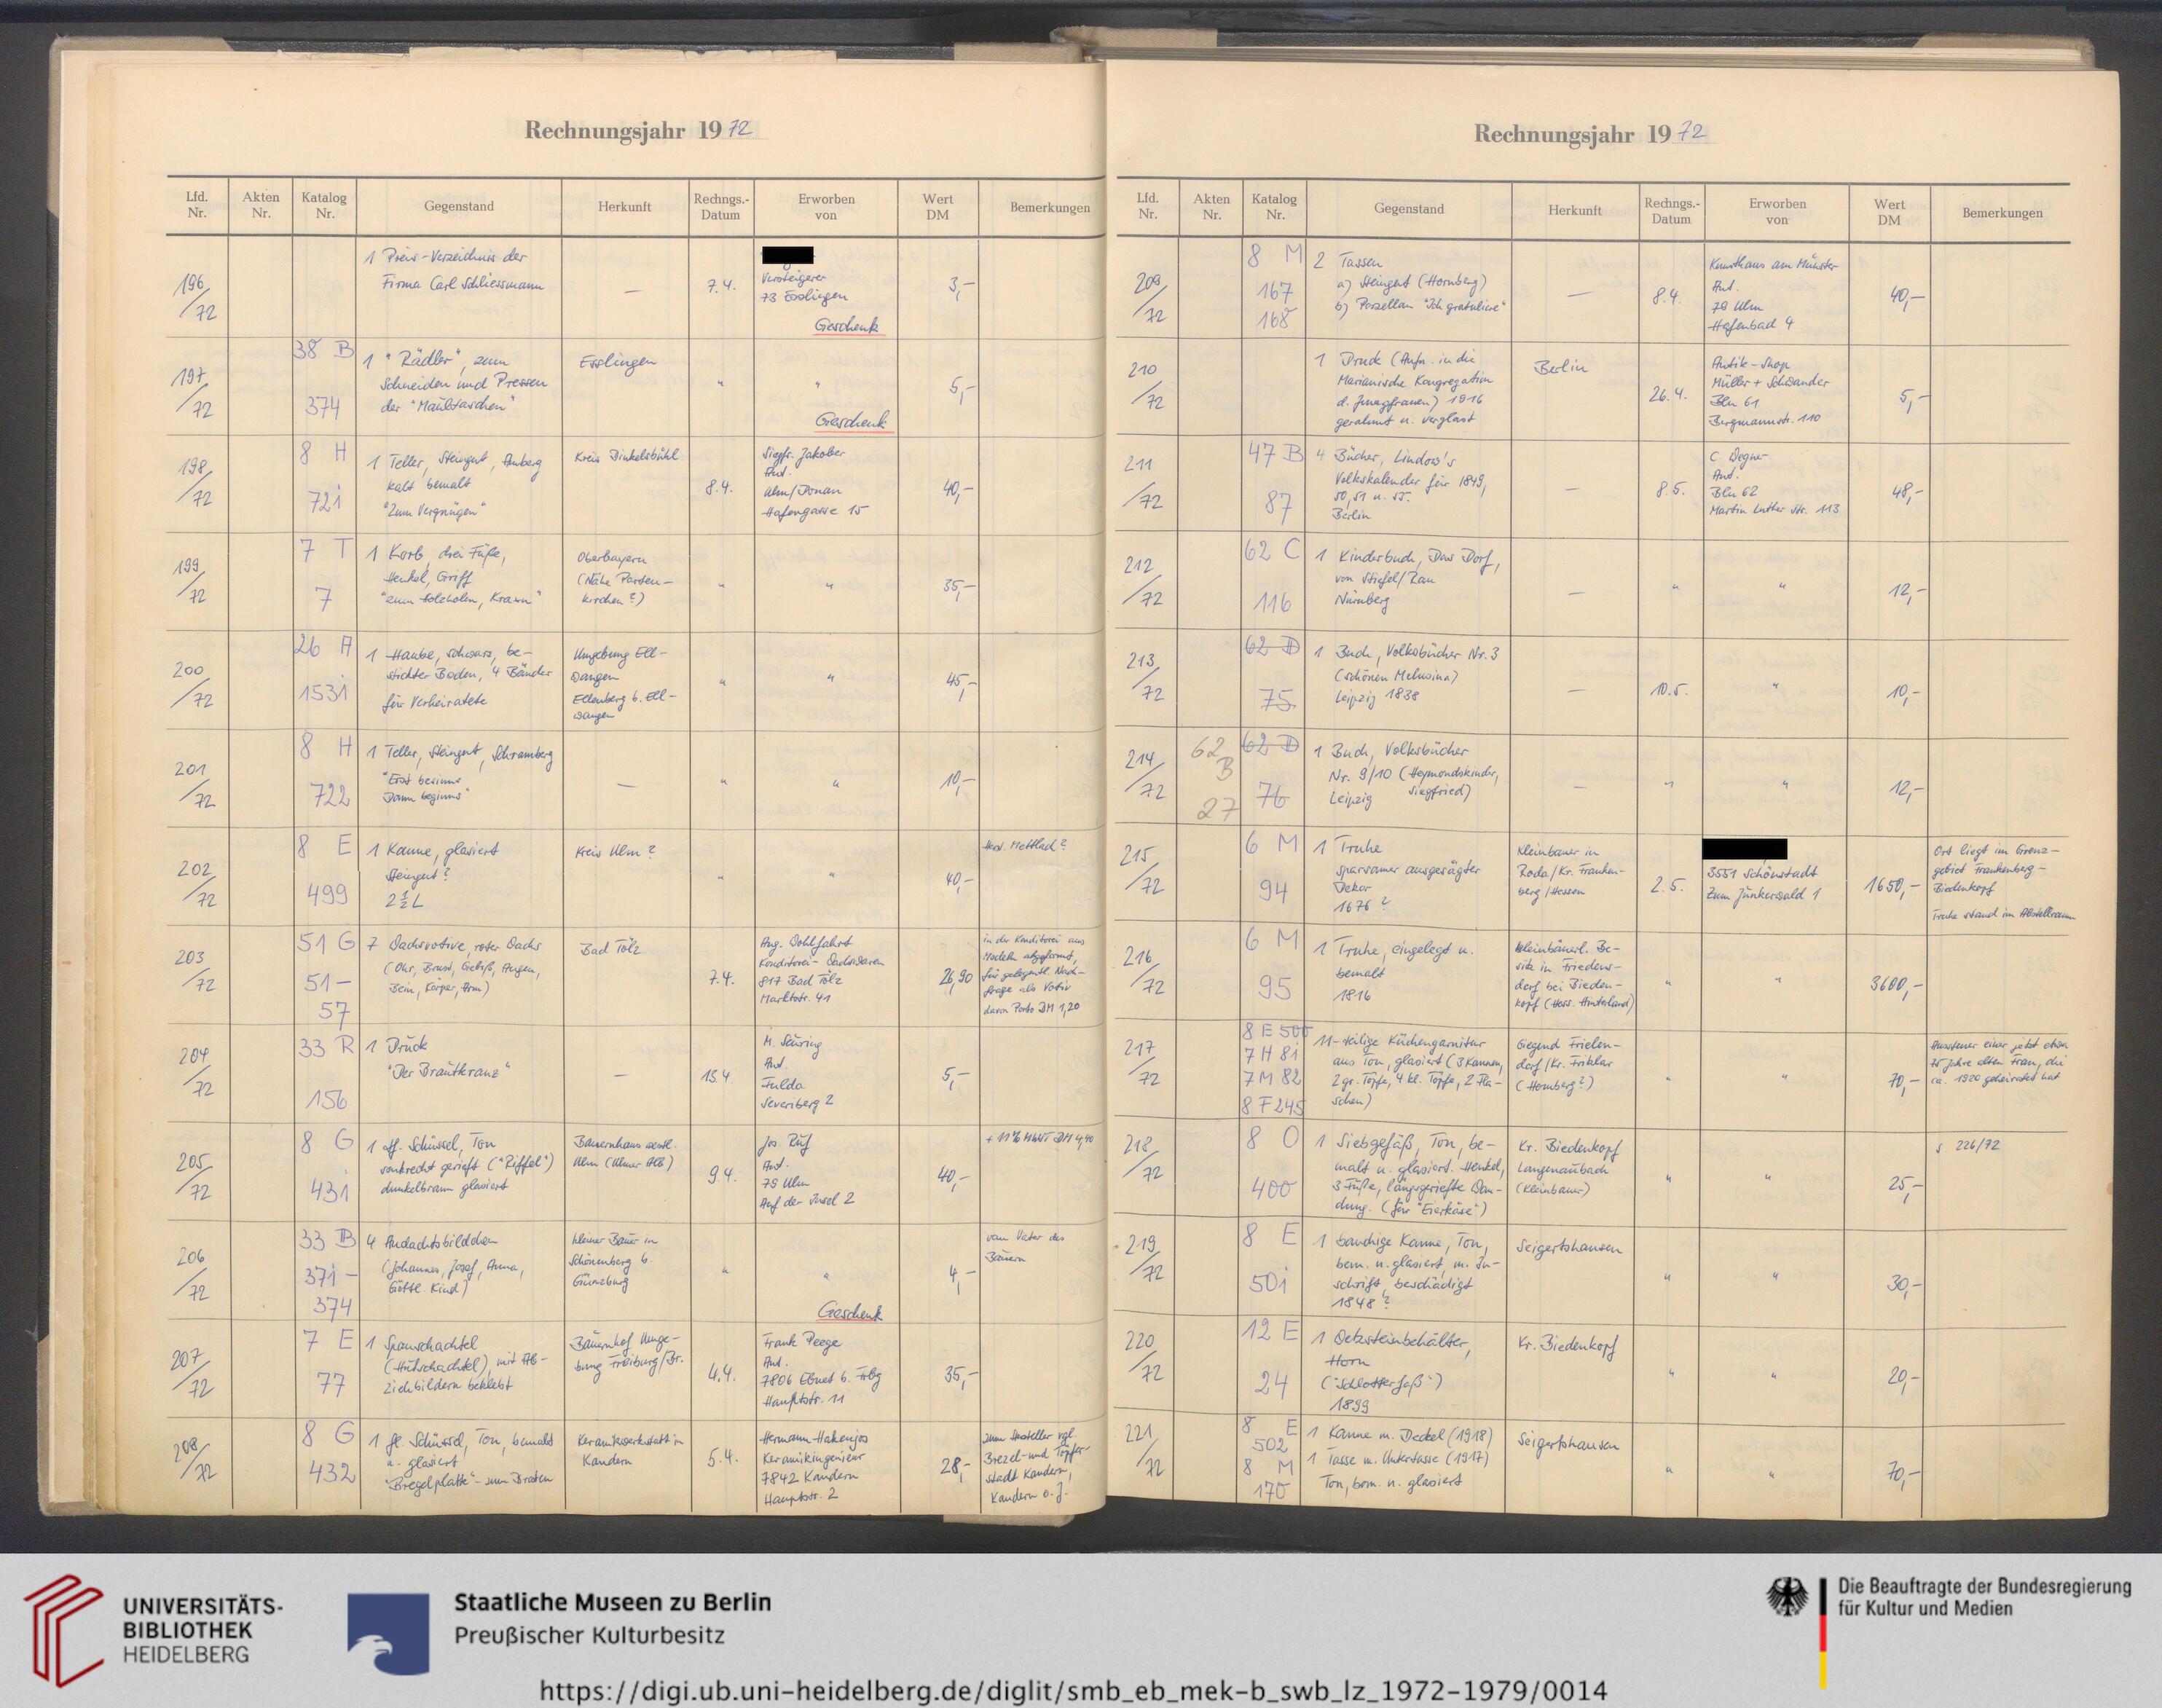 Rechnungsjahr 1972
Lfd. Nr.
Akten Nr.
Katalog Nr.
Gegenstand
Herkunft
Rechngs.-Datum
Erworben von
Wert DM
Bemerkungen
196/72
1 Preis-Verzeichnis der
Firma Carl Schliessmann
—
7.4.
Versteigerer
73 Esslingen
Geschenk
3,-
197/72
38 B
374
1 "Rädler", zum
Schneiden und Pressen
der "Maultaschen"
Esslingen
"
"
Geschenk
5,-
198/72
8 H
721
1 Teller, Steingut, Amberg
kalt bemalt
"Zum Vergnügen"
Kreis Dinkelsbühl
8.4.
Siegfr. Jakober
Ant.
Ulm/Donau
Hafengasse 15
40,-
199/72
7 T
7
1 Korb, drei Füße,
Henkel, Griff
"zum Holzholen, Kraxn"
Oberbayern
(Nähe Parten-
kirchen?)
"
"
35,-
200/72
26 A
1531
1 Haube, schwarz, be-
stickter Boden, 4 Bänder
für Verheiratete
Umgebung Ell-
wangen
Ellenberg b. Ell-
wangen
"
"
45,-
201/72
8 H
722
1 Teller, Steingut, Schramberg
"Erst besinns
Dann beginns"
—
"
"
10,-
202/72
8 E
499
1 Kanne, glasiert
Steingut?
2½ L
Kreis Ulm?
"
"
40,-
Herst. Mettlach?
203/72
51 G
51-
57
7 Wachsvotive, roter Wachs
(Ohr, Brust, Gebiß, Augen,
Bein, Körper, Arm)
Bad Tölz
7.4.
Aug. Wohlfahrt
Konditorei-Wachswaren
817 Bad Tölz
Marktstr. 41
26,90
in der Konditorei aus
Modeln abgeformt,
für gelegentl. Nach-
frage als Votiv
davon Porto DM 1,20
204/72
33 R
156
1 Druck
"Der Brautkranz"
—
13.4.
M. Seuring
Ant.
Fulda
Severiberg 2
5,-
205/72
8 G
431
1 Schüssel, Ton
senkrecht gerieft ("Riffel")
dunkelbraun glasiert
Bauernhaus westl.
Ulm (Ulmer Alb)
9.4.
Jos. Ruf
Ant.
79 Ulm
Auf der Insel 2
40,-
+ 11% MWST DM 4,40
206/72
33 B
371-
374
4 Andachtsbildchen
(Johannes, Josef, Anna,
Göttl. Kind)
kleiner Bauer in
Schönenberg b.
Günzburg
"
"
Geschenk
4,-
vom Vater des
Bauern
207/72
7 E
77
1 Spanschachtel
(Hutschachtel), mit Ab-
ziehbildern beklebt
Bauernhof Umge-
bung Freiburg/Br.
4.4.
Frank Peege
Ant.
7806 Ebnet b. Frbg
Hauptstr. 11
35,-
208/72
8 G
432
1 fl. Schüssel, Ton, bemalt
u. glasiert
"Bregelplatte"-zum Braten
Keramikwerkstatt in
Kandern
5.4.
Hermann Hakenjos
Keramikingenieur
7842 Kandern
Hauptstr. 2
28,-
zum Hersteller vgl.
Brezel- und Töpfer-
stadt Kandern,
Kandern o.J.
Rechnungsjahr 1972
Lfd. Nr.
Akten Nr.
Katalog Nr.
Gegenstand
Herkunft
Rechngs.-Datum
Erworben von
Wert DM
Bemerkungen
209/72
8 M
167
168
2 Tassen
a) Steingut (Hornberg)
b) Porzellan "Ich gratuliere"
—
8.4.
Kunsthaus am Münster
Ant.
79 Ulm
Hafenbad 4
40,-
210/72
1 Druck (Aufn. in die
Marianische Kongregation
d. Jungfrauen) 1916
gerahmt u. verglast
Berlin
26.4.
Antik-Shop
Müller + Schwander
Bln 61
Bergmannstr. 110
5,-
211/72
47 B
87
4 Bücher, Lindow's
Volkskalender für 1849,
50, 51 u. 55.
Berlin
—
8.5.
C. Wegner
Ant.
Bln 62
Martin Luther Str. 113
48,-
212/72
62 C
116
1 Kinderbuch, Das Dorf,
von Stiefel/Rau
Nürnberg
—
"
"
12,-
213/72
62 D
75
1 Buch, Volksbücher Nr. 3
(schönen Melusina)
Leipzig 1838
—
10.5.
"
10,-
214/72
62
B
27
62 D
76
1 Buch, Volksbücher
Nr. 9/10 (Heymondskinder,
Leipzig Siegfried)
—
"
"
12,-
215/72
6 M
94
1 Truhe
sparsamer ausgesägter
Dekor
1676?
Kleinbauer in
Roda/Kr. Franken-
berg/Hessen
2.5.
3551 Schönstadt
Zum Junkernwald 1
1650,-
Ort liegt im Grenz-
gebiet Frankenberg-
Biedenkopf
Truhe stand im Abstellraum
216/72
6 M
95
1 Truhe, eingelegt u.
bemalt
1816
kleinbäuerl. Be-
sitz in Friedens-
dorf bei Bieden-
kopf (Hess. Hinterland)
"
"
3600,-
217/72
8 E 500
7 H 81
7 M 82
8 F 245
11-teilige Küchengarnitur
aus Ton, glasiert (3 Kannen,
2 gr. Töpfe, 4 kl. Töpfe, 2 Fla-
schen)
Gegend Frielen-
dorf/Kr. Fritzlar
(Homberg?)
"
"
70,-
Aussteuer einer jetzt etwa
75 Jahre alten Frau, die
ca. 1920 geheiratet hat
218/72
8 O
400
1 Siebgefäß, Ton, be-
malt u. glasiert. Henkel,
3 Füße, längsgeriefte Wan-
dung. (für "Eierkäse")
Kr. Biedenkopf
Langenaubach
(Kleinbauer)
"
"
25,-
s 226/72
219/72
8 E
501
1 bauchige Kanne, Ton,
bem. u. glasiert, m. In-
schrift, beschädigt
1848?
Seigertshausen
"
"
30,-
220/72
12 E
24
1 Wetzsteinbehälter,
Horn
("Schlotterfaß")
1899
Kr. Biedenkopf
"
"
20,-
221/72
8 E
502
8 M
170
1 Kanne m. Deckel (1918)
1 Tasse m. Untertasse (1917)
Ton, bem. u. glasiert
Seigertshausen
"
"
70,-
UNIVERSITÄTS-
BIBLIOTHEK
HEIDELBERG
Staatliche Museen zu Berlin
Preußischer Kulturbesitz
Die Beauftragte der Bundesregierung
für Kultur und Medien
https://digi.ub.uni-heidelberg.de/diglit/smb_eb_mek-b_swb_lz_1972-1979/0014